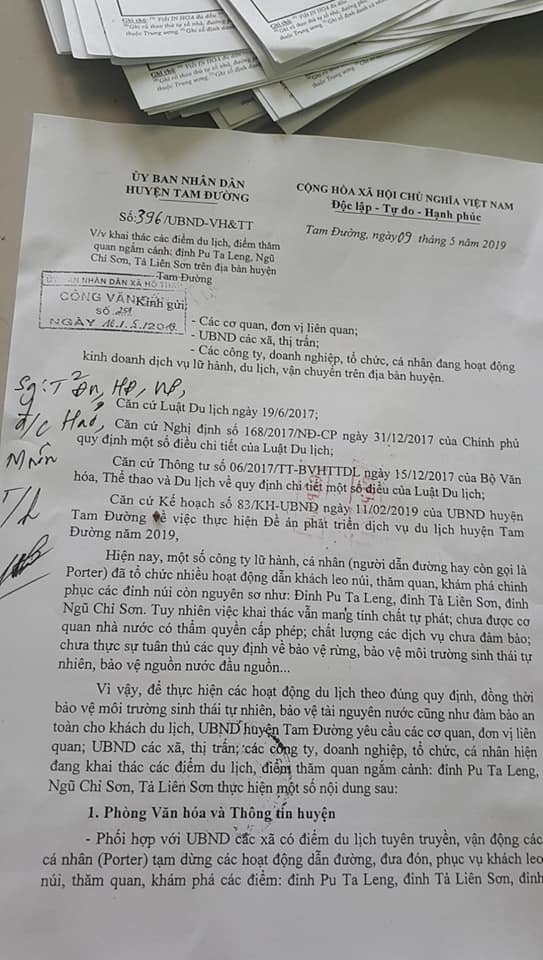 Ghi chú: ⁽¹⁾ Viết IN HOA đủ dấu.
ỦY BAN NHÂN DÂN
HUYỆN TAM ĐƯỜNG
CỘNG HÒA XÃ HỘI CHỦ NGHĨA VIỆT NAM
Độc lập - Tự do - Hạnh phúc
Số: 396/UBND-VH&TT
Tam Đường, ngày 09 tháng 5 năm 2019
V/v khai thác các điểm du lịch, điểm thăm
quan ngắm cảnh: đỉnh Pu Ta Leng, Ngũ
Chỉ Sơn, Tả Liên Sơn trên địa bàn huyện
Tam Đường
CÔNG VĂN
SỐ
NGÀY
Kính gửi:
- Các cơ quan, đơn vị liên quan;
- UBND các xã, thị trấn;
- Các công ty, doanh nghiệp, tổ chức, cá nhân đang hoạt động
kinh doanh dịch vụ lữ hành, du lịch, vận chuyển trên địa bàn huyện.
Căn cứ Luật Du lịch ngày 19/6/2017;
Căn cứ Nghị định số 168/2017/NĐ-CP ngày 31/12/2017 của Chính phủ
quy định một số điều chi tiết của Luật Du lịch;
Căn cứ Thông tư số 06/2017/TT-BVHTTDL ngày 15/12/2017 của Bộ Văn
hóa, Thể thao và Du lịch về quy định chi tiết một số điều của Luật Du lịch;
Căn cứ Kế hoạch số 83/KH-UBND ngày 11/02/2019 của UBND huyện
Tam Đường về việc thực hiện Đề án phát triển dịch vụ du lịch huyện Tam
Đường năm 2019,
Hiện nay, một số công ty lữ hành, cá nhân (người dẫn đường hay còn gọi là
Porter) đã tổ chức nhiều hoạt động dẫn khách leo núi, thăm quan, khám phá chinh
phục các đỉnh núi còn nguyên sơ như: Đỉnh Pu Ta Leng, đỉnh Tả Liên Sơn, đỉnh
Ngũ Chỉ Sơn. Tuy nhiên việc khai thác vẫn mang tính chất tự phát; chưa được cơ
quan nhà nước có thẩm quyền cấp phép; chất lượng các dịch vụ chưa đảm bảo;
chưa thực sự tuân thủ các quy định về bảo vệ rừng, bảo vệ môi trường sinh thái tự
nhiên, bảo vệ nguồn nước đầu nguồn...
Vì vậy, để thực hiện các hoạt động du lịch theo đúng quy định, đồng thời
bảo vệ môi trường sinh thái tự nhiên, bảo vệ tài nguyên nước cũng như đảm bảo an
toàn cho khách du lịch, UBND huyện Tam Đường yêu cầu các cơ quan, đơn vị liên
quan; UBND các xã, thị trấn; các công ty, doanh nghiệp, tổ chức, cá nhân hiện
đang khai thác các điểm du lịch, điểm thăm quan ngắm cảnh: đỉnh Pu Ta Leng,
Ngũ Chỉ Sơn, Tả Liên Sơn thực hiện một số nội dung sau:
1. Phòng Văn hóa và Thông tin huyện
- Phối hợp với UBND các xã có điểm du lịch tuyên truyền, vận động các
cá nhân (Porter) tạm dừng các hoạt động dẫn đường, đưa đón, phục vụ khách leo
núi, thăm quan, khám phá các điểm: đỉnh Pu Ta Leng, đỉnh Tả Liên Sơn, đỉnh